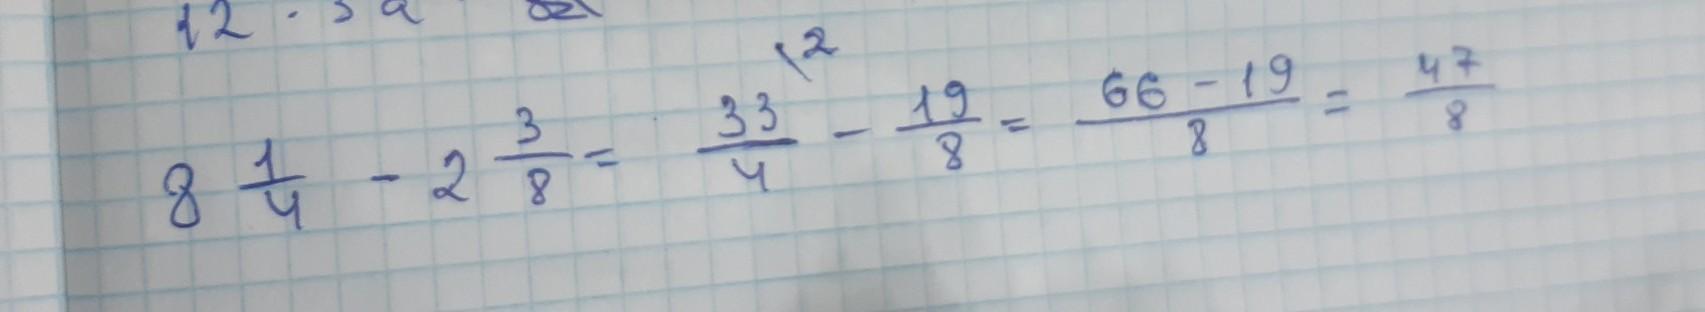 12 . 3a
8 1/4 - 2 3/8 = 33/4 \2 - 19/8 = 66 - 19/8 = 47/8